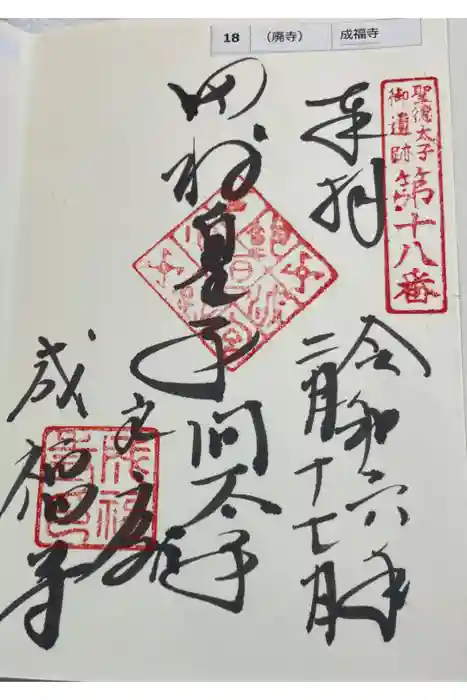 18 （廃寺） 成福寺
聖徳太子
御遺跡
第十八番
奉拝
令和六年
二月十七日
田村皇子問太子
之
成福寺